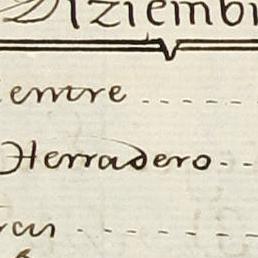 Diziemb
entre - - - -
Herradero - -
ran - - - - -